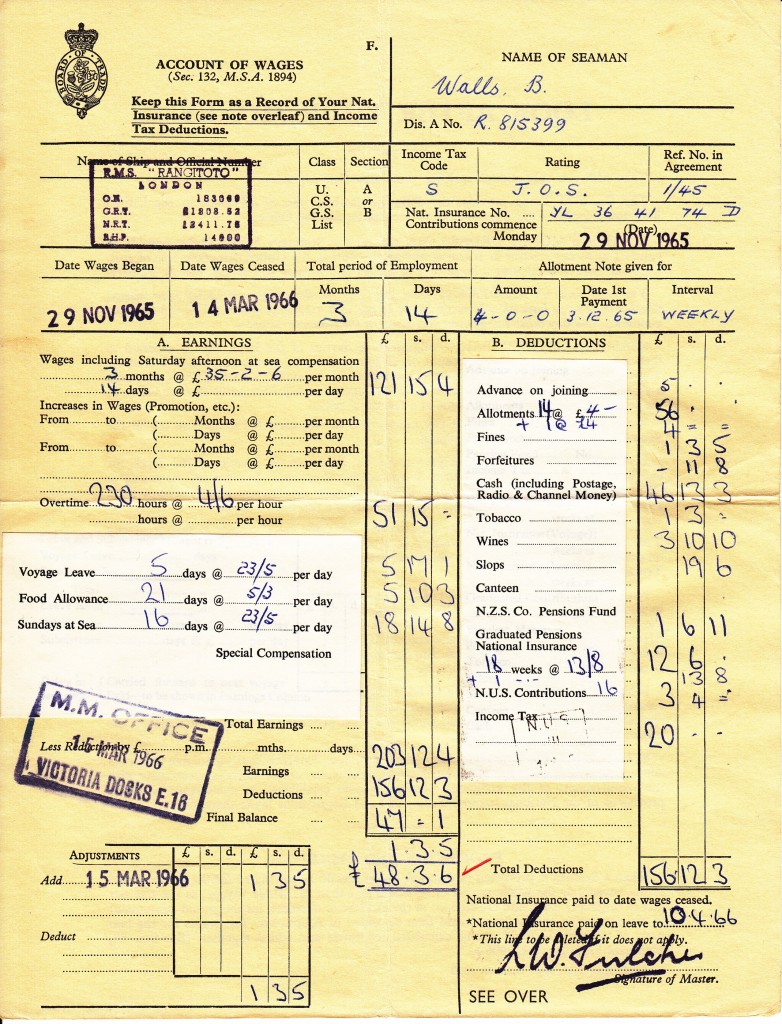 F.
BOARD OF TRADE
ACCOUNT OF WAGES
(Sec. 132, M.S.A. 1894)
Keep this Form as a Record of Your Nat.
Insurance (see note overleaf) and Income
Tax Deductions.
NAME OF SEAMAN
Walls. B.
Dis. A No. R. 815399
Name of Ship and Official Number
R.M.S. "RANGITOTO"
LONDON
O.N. 183069
G.R.T. 21808.52
N.R.T. 12411.76
B.H.P. 14900
Class
U.
C.S.
G.S.
List
Section
A
or
B
Income Tax
Code
S
Rating
J.O.S.
Ref. No. in
Agreement
1/45
Nat. Insurance No. .... YL 36 41 74 D
Contributions commence (Date)
Monday 29 NOV 1965
Date Wages Began
29 NOV 1965
Date Wages Ceased
14 MAR 1966
Total period of Employment
Months Days
3 14
Allotment Note given for
Amount
4-0-0
Date 1st
Payment
3.12.65
Interval
WEEKLY
A. EARNINGS £ s. d.
Wages including Saturday afternoon at sea compensation
3 months @ £ 35-2-6 per month 121 15 4
14 days @ £ per day
Increases in Wages (Promotion, etc.):
From to (....Months @ £ per month
(....Days @ £ per day
From to (....Months @ £ per month
(....Days @ £ per day
Overtime 230 hours @ 4/6 per hour 51 15 =
hours @ per hour
Voyage Leave 5 days @ 23/5 per day 5 17 1
Food Allowance 21 days @ 5/3 per day 5 10 3
Sundays at Sea 16 days @ 23/5 per day 18 14 8
Special Compensation
Total Earnings ....
Less Reduction by £ p.m. mths. days 203 12 4
Earnings ....
Deductions .... 156 12 3
Final Balance .... 47 = 1
1.3.5
£ 48.3.6
M.M. OFFICE
15 MAR 1966
VICTORIA DOCKS E.16
ADJUSTMENTS £ s. d. £ s. d.
Add 15 MAR 1966 1 3 5
Deduct
1 3 5
B. DEDUCTIONS £ s. d.
Advance on joining 5 . .
Allotments 14 @ £ 4- 56 . .
+ 1 @ £4 4 = =
Fines 1 3 5
Forfeitures - 11 8
Cash (including Postage,
Radio & Channel Money) 46 13 3
Tobacco 1 3 =
Wines 3 10 10
Slops 19 6
Canteen
N.Z.S. Co. Pensions Fund
Graduated Pensions 1 6 11
National Insurance
18 weeks @ 13/8 12 6 .
+ 1 13 8
N.U.S. Contributions 16 3 4 =
Income Tax 20 - -
N.U.S
Total Deductions 156 12 3
National Insurance paid to date wages ceased.
*National Insurance paid on leave to 10.4.66
*This line to be deleted if it does not apply.
L.W. Fulcher
Signature of Master.
SEE OVER